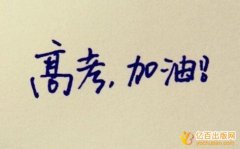 高考,加油!!
亿百出版网